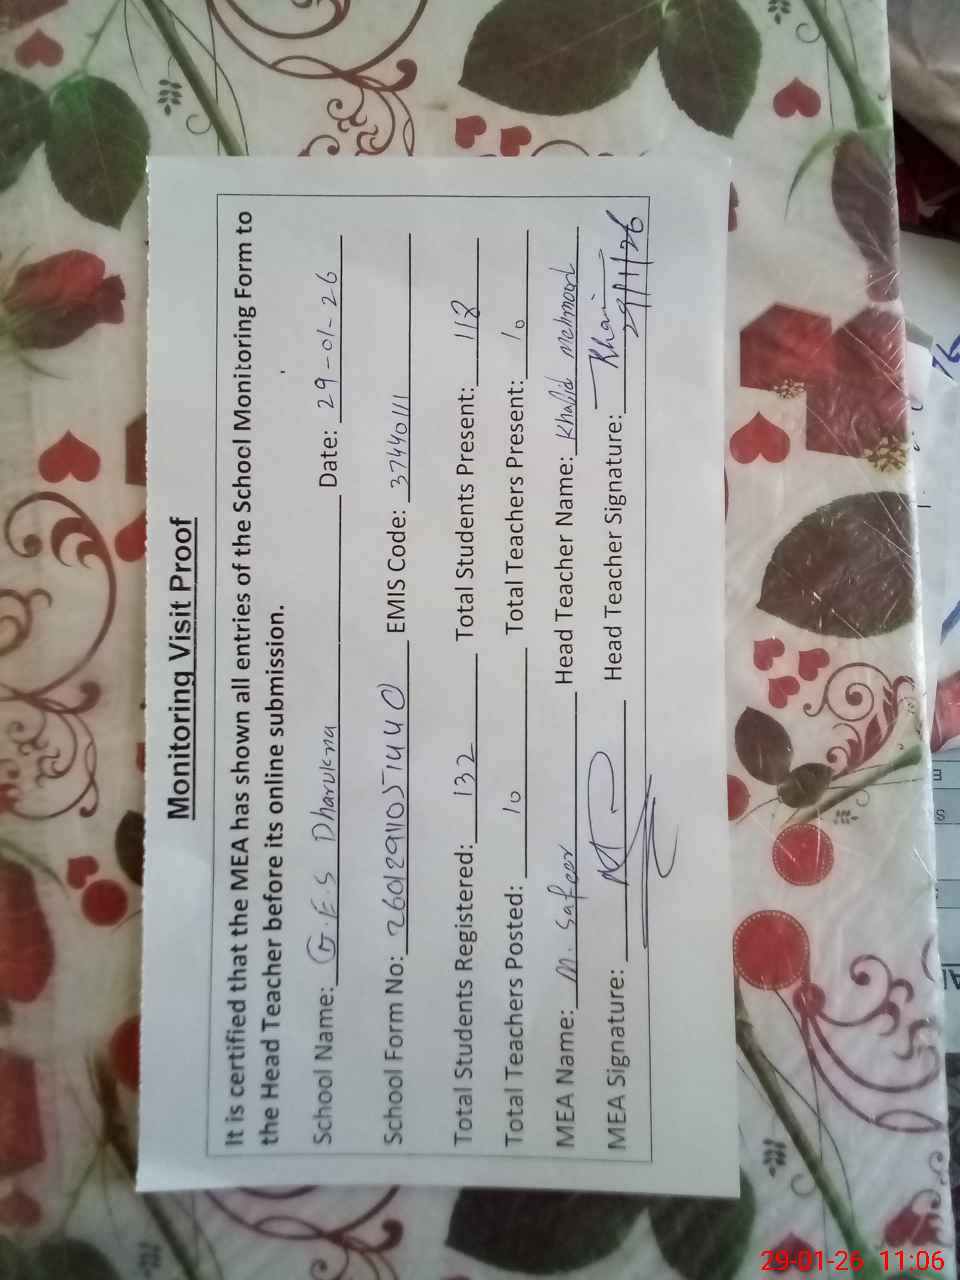 Monitoring Visit Proof
It is certified that the MEA has shown all entries of the School Monitoring Form to
the Head Teacher before its online submission.
School Name: G.E.S Dharukna Date: 29-01-26
School Form No: 26012911051440 EMIS Code: 37440111
Total Students Registered: 132 Total Students Present: 118
Total Teachers Posted: 10 Total Teachers Present: 10
MEA Name: M. Safeer Head Teacher Name: Khalid Mehmood
MEA Signature: Head Teacher Signature:
29/1/26
29-01-26 11:06